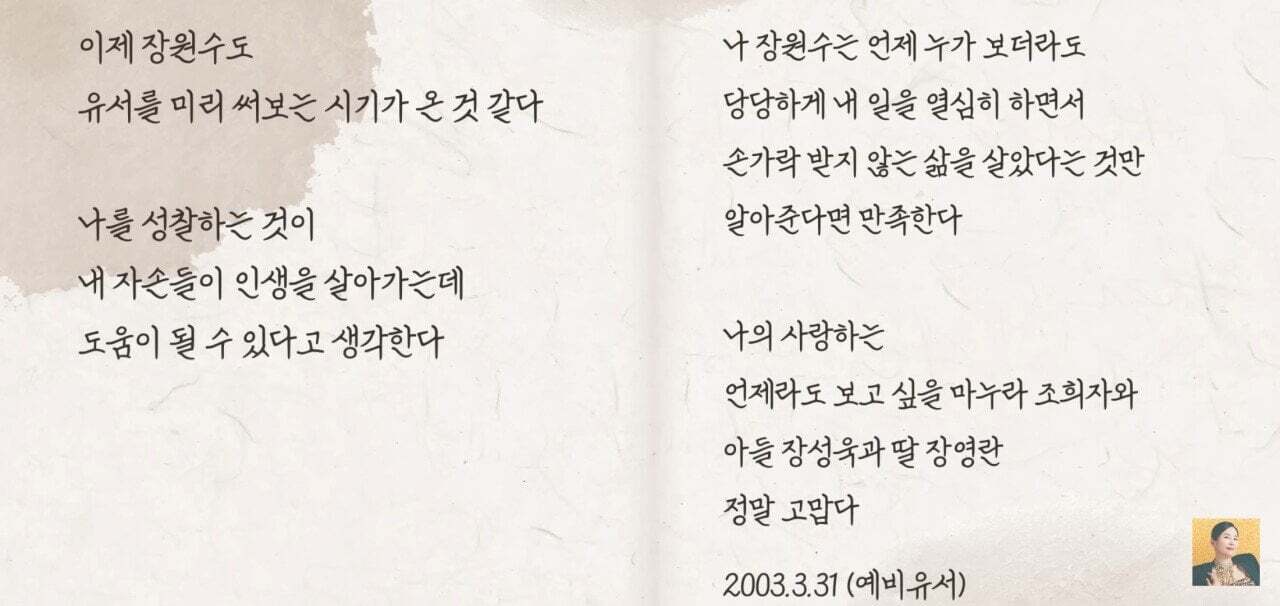 이제 장원수도
유서를 미리 써보는 시기가 온 것 같다
나를 성찰하는 것이
내 자손들이 인생을 살아가는데
도움이 될 수 있다고 생각한다
나 장원수는 언제 누가 보더라도
당당하게 내 일을 열심히 하면서
손가락 받지 않는 삶을 살았다는 것만
알아준다면 만족한다
나의 사랑하는
언제라도 보고 싶을 마누라 조희자와
아들 장성욱과 딸 장영란
정말 고맙다
2003.3.31 (예비유서)